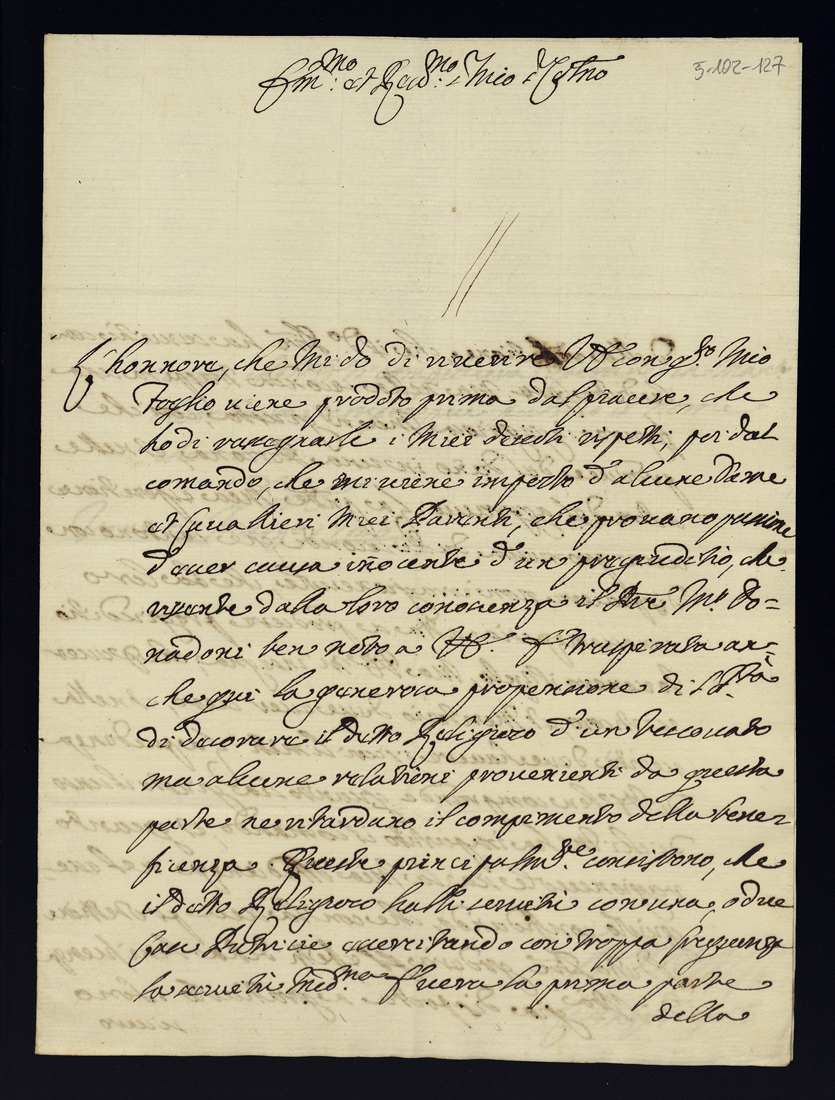 Em.mo et Reu.mo Mio Sig.no
5-102-127
L'honnore, che mi do di riuerire VE con q.sto Mio
Foglio uiene prodoto prima dal piacere, che
ho di rasegnarle i Miei deuoti rispetti, poi dal
comando, che mi uiene imposto d'alcune Dame
et Cauallieri Miei Parenti, che prouano passione
d'auer causa inocente d'un pregiuditio, che
risente dalla loro conoscenza il Pre M.o Do=
nadoni ben noto a VE. E' traspirata an=
che qui la generosa propensione di S. S.tà
di decorare il detto Religioso d'un Vescouato
ma alcune relationi prouenienti da questa
parte ne ritardano il compimento della bene=
ficienza. Queste principalm.te consistono, che
il detto Religioso habbi seruitù con una, o due
Case Patricie esercitando con troppa frequenza
la seruitù med.ma E' uera la prima parte
della